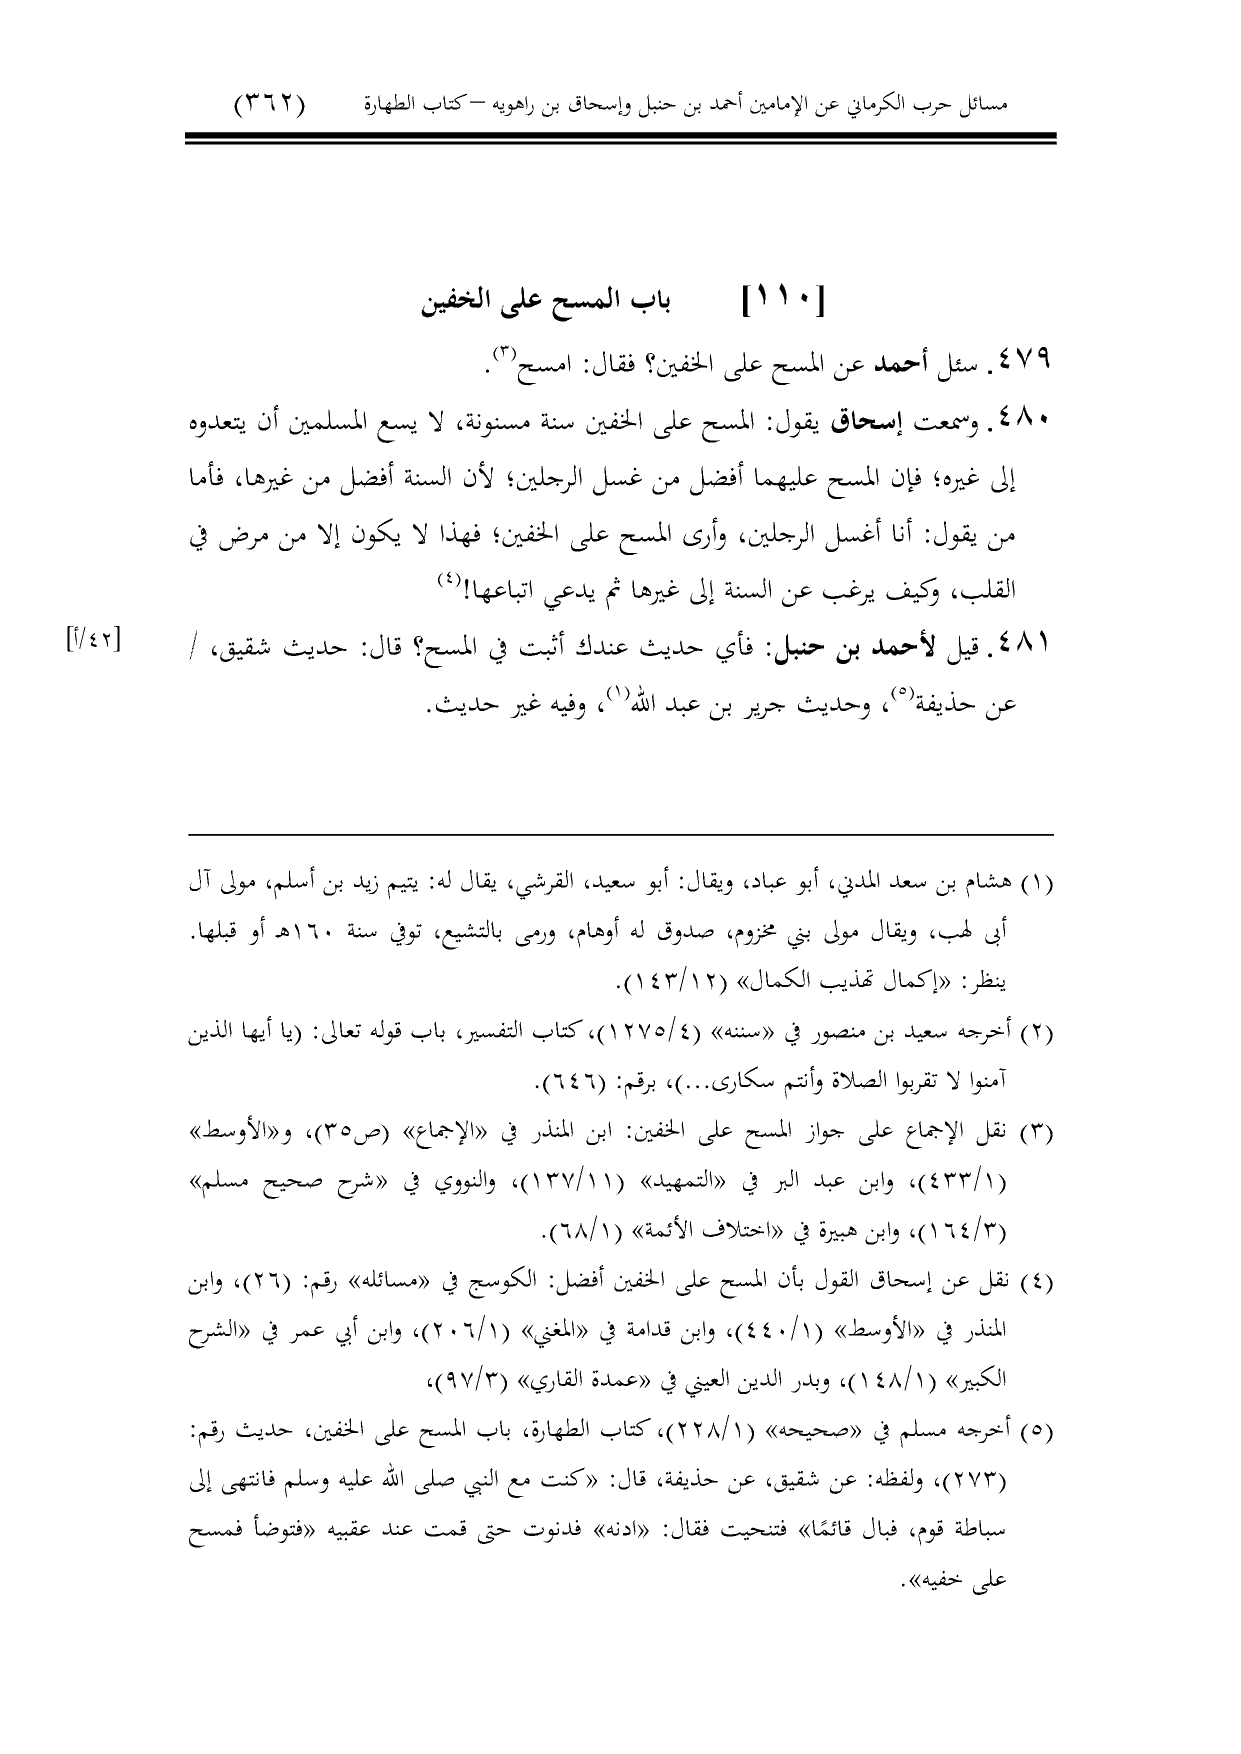 مسائل حرب الكرماني عن الإمامين أحمد بن حنبل وإسحاق بن راهويه – كتاب الطهارة (٣٦٢)
[١١٠] باب المسح على الخفين
٤٧٩. سئل أحمد عن المسح على الخفين؟ فقال: امسح(٣).
٤٨٠. وسمعت إسحاق يقول: المسح على الخفين سنة مسنونة، لا يسع المسلمين أن يتعدوه
إلى غيره؛ فإن المسح عليهما أفضل من غسل الرجلين؛ لأن السنة أفضل من غيرها، فأما
من يقول: أنا أغسل الرجلين، وأرى المسح على الخفين؛ فهذا لا يكون إلا من مرض في
القلب، وكيف يرغب عن السنة إلى غيرها ثم يدعي اتباعها!(٤)
٤٨١. قيل لأحمد بن حنبل: فأي حديث عندك أثبت في المسح؟ قال: حديث شقيق، / [٤٢/أ]
عن حذيفة(٥)، وحديث جرير بن عبد الله(١)، وفيه غير حديث.
(١) هشام بن سعد المدني، أبو عباد، ويقال: أبو سعيد، القرشي، يقال له: يتيم زيد بن أسلم، مولى آل
أبى لهب، ويقال مولى بني مخزوم، صدوق له أوهام، ورمى بالتشيع، توفي سنة ١٦٠هـ أو قبلها.
ينظر: «إكمال تهذيب الكمال» (١٤٣/١٢).
(٢) أخرجه سعيد بن منصور في «سننه» (١٢٧٥/٤)، كتاب التفسير، باب قوله تعالى: (يا أيها الذين
آمنوا لا تقربوا الصلاة وأنتم سكارى...)، برقم: (٦٤٦).
(٣) نقل الإجماع على جواز المسح على الخفين: ابن المنذر في «الإجماع» (ص٣٥)، و«الأوسط»
(٤٣٣/١)، وابن عبد البر في «التمهيد» (١٣٧/١١)، والنووي في «شرح صحيح مسلم»
(١٦٤/٣)، وابن هبيرة في «اختلاف الأئمة» (٦٨/١).
(٤) نقل عن إسحاق القول بأن المسح على الخفين أفضل: الكوسج في «مسائله» رقم: (٢٦)، وابن
المنذر في «الأوسط» (٤٤٠/١)، وابن قدامة في «المغني» (٢٠٦/١)، وابن أبي عمر في «الشرح
الكبير» (١٤٨/١)، وبدر الدين العيني في «عمدة القاري» (٩٧/٣)،
(٥) أخرجه مسلم في «صحيحه» (٢٢٨/١)، كتاب الطهارة، باب المسح على الخفين، حديث رقم:
(٢٧٣)، ولفظه: عن شقيق، عن حذيفة، قال: «كنت مع النبي صلى الله عليه وسلم فانتهى إلى
سباطة قوم، فبال قائمًا» فتنحيت فقال: «ادنه» فدنوت حتى قمت عند عقبيه «فتوضأ فمسح
على خفيه».